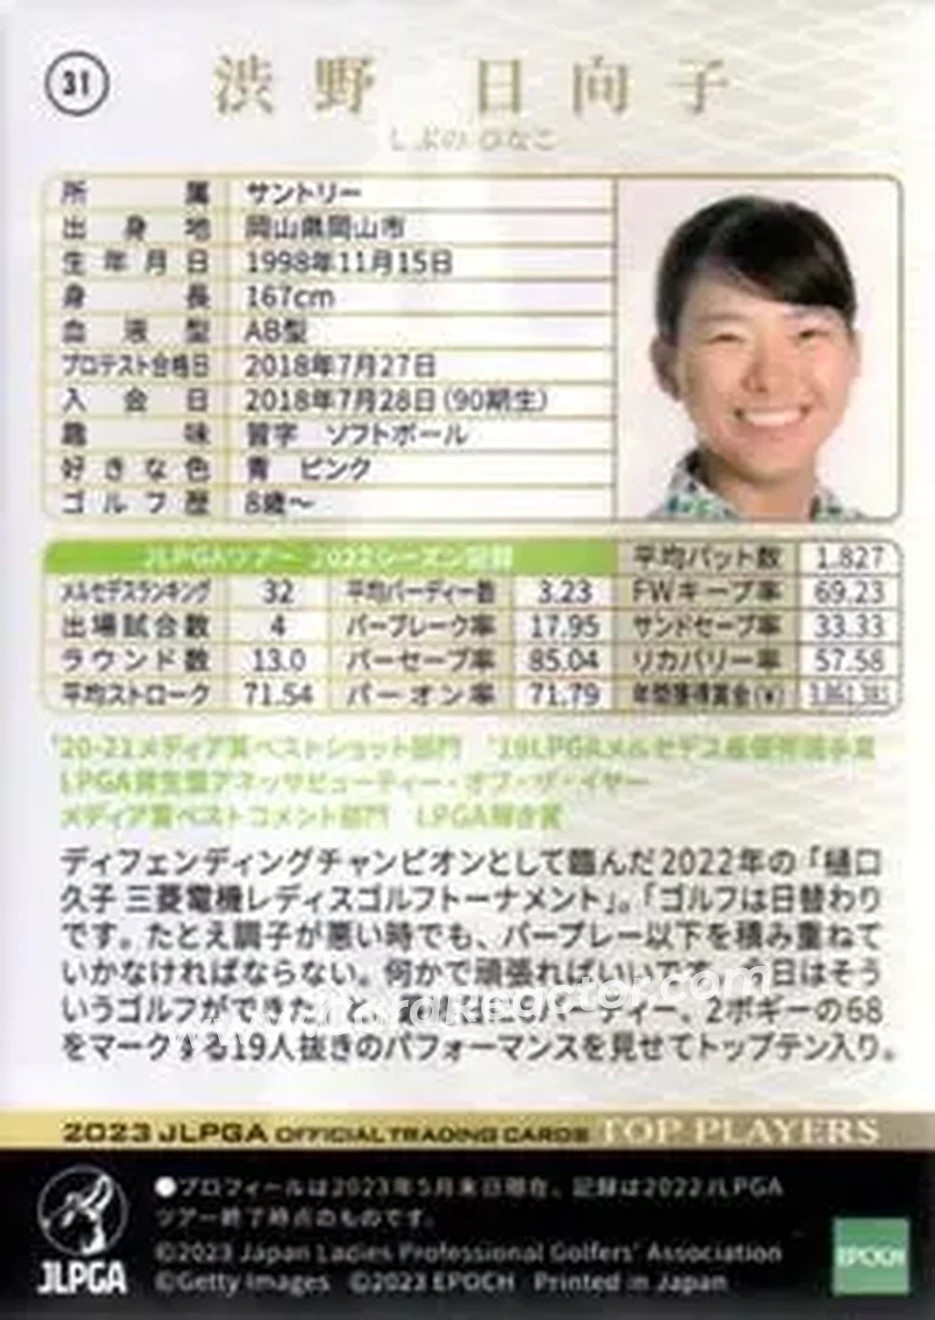 31
渋野 日向子
しぶの ひなこ
所属 サントリー
出身地 岡山県岡山市
生年月日 1998年11月15日
身長 167cm
血液型 AB型
プロテスト合格日 2018年7月27日
入会日 2018年7月28日(90期生)
趣味 習字 ソフトボール
好きな色 青 ピンク
ゴルフ歴 8歳〜
JLPGAツアー 2022シーズン記録 平均パット数 1.827
メルセデスランキング 32 平均バーディー数 3.23 FWキープ率 69.23
出場試合数 4 パーブレーク率 17.95 サンドセーブ率 33.33
ラウンド数 13.0 パーセーブ率 85.04 リカバリー率 57.58
平均ストローク 71.54 パーオン率 71.79 年間獲得賞金(¥)
'20-21メディア賞ベストショット部門 '19LPGAメルセデス最優秀選手賞
LPGA資生堂アネッサビューティー・オブ・ザ・イヤー
メディア賞ベストコメント部門 LPGA輝き賞
ディフェンディングチャンピオンとして臨んだ2022年の「樋口
久子 三菱電機レディスゴルフトーナメント」。「ゴルフは日替わり
です。たとえ調子が悪い時でも、パープレー以下を積み重ねて
いかなければならない。何かで頑張ればいいです。今日はそう
いうゴルフができた」と、最終日に6バーディー、2ボギーの68
をマークする19人抜きのパフォーマンスを見せてトップテン入り。
2023 JLPGA OFFICIAL TRADING CARDS TOP PLAYERS
●プロフィールは2023年5月末日現在、記録は2022JLPGA
ツアー終了時点のものです。
©2023 Japan Ladies Professional Golfers' Association
©Getty Images ©2023 EPOCH Printed in Japan
JLPGA
EPOCH